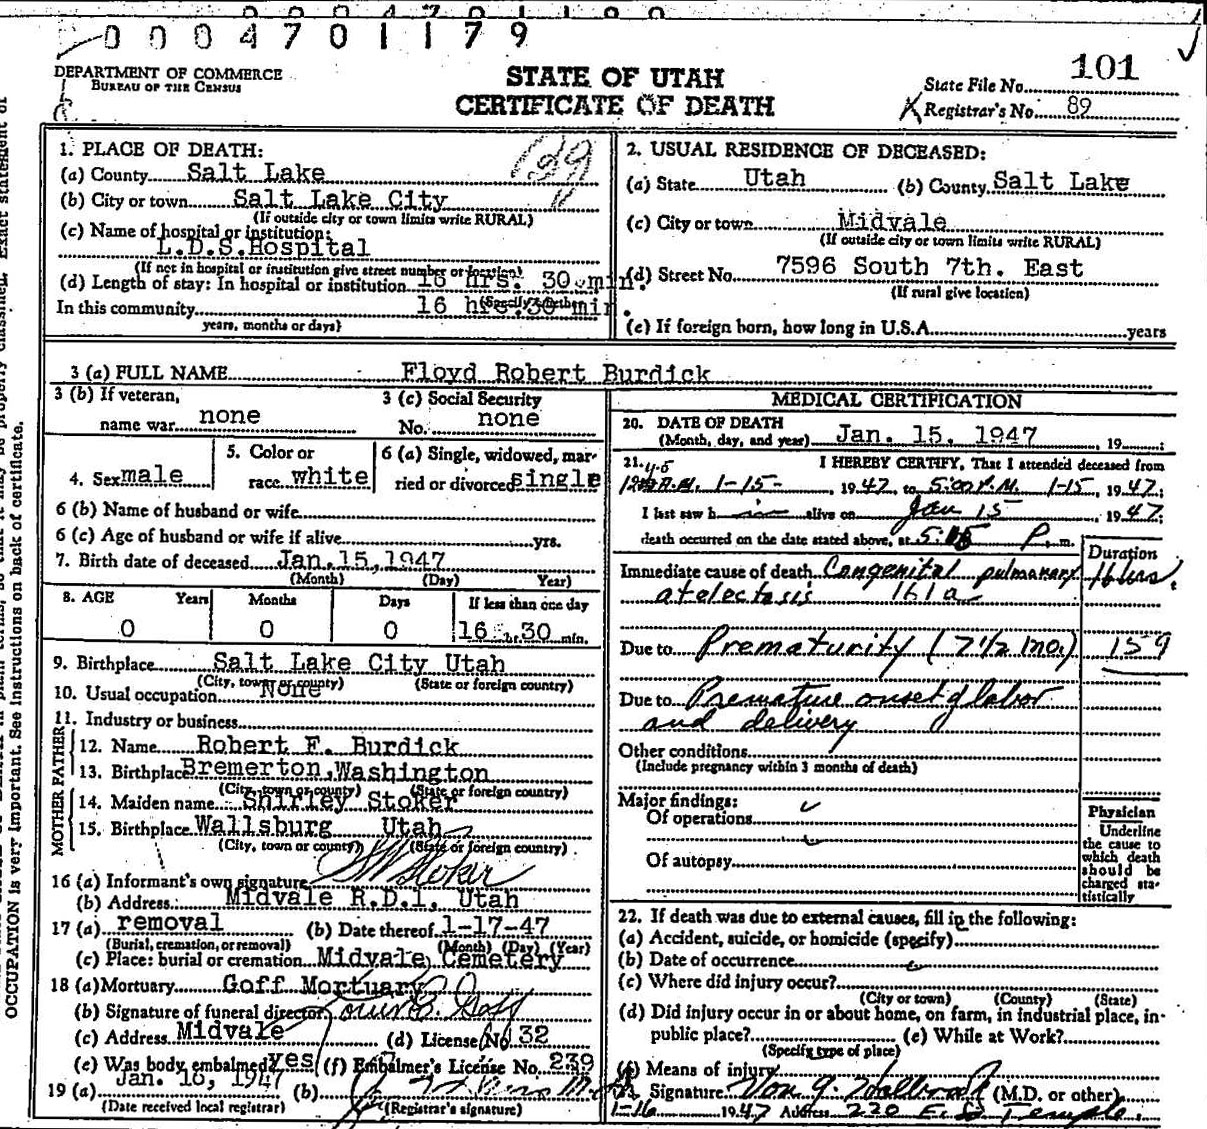 0 0 0 4 7 0 1 1 7 9
DEPARTMENT OF COMMERCE
BUREAU OF THE CENSUS
STATE OF UTAH
CERTIFICATE OF DEATH
State File No. 101
Registrar's No. 89
1. PLACE OF DEATH:
(a) County Salt Lake
(b) City or town Salt Lake City
(If outside city or town limits write RURAL)
(c) Name of hospital or institution:
L.D.S. Hospital
(If not in hospital or institution give street number or location)
(d) Length of stay: In hospital or institution 16 hrs. 30 min.
(Specify whether
In this community 16 hrs. 30 min.
years, months or days)
2. USUAL RESIDENCE OF DECEASED:
(a) State Utah (b) County Salt Lake
(c) City or town Midvale
(If outside city or town limits write RURAL)
(d) Street No. 7596 South 7th. East
(If rural give location)
(e) If foreign born, how long in U.S.A. years
3 (a) FULL NAME Floyd Robert Burdick
3 (b) If veteran,
name war none
3 (c) Social Security
No. none
4. Sex male
5. Color or
race white
6 (a) Single, widowed, mar-
ried or divorced single
6 (b) Name of husband or wife
6 (c) Age of husband or wife if alive yrs.
7. Birth date of deceased Jan. 15, 1947
(Month) (Day) Year)
8. AGE Years Months Days If less than one day
0 0 0 16 hr. 30 min.
9. Birthplace Salt Lake City Utah
(City, town or county) (State or foreign country)
10. Usual occupation None
11. Industry or business
FATHER
12. Name Robert F. Burdick
13. Birthplace Bremerton, Washington
(City, town or county) (State or foreign country)
MOTHER
14. Maiden name Shirley Stoker
15. Birthplace Wallsburg Utah
(City, town or county) (State or foreign country)
16 (a) Informant's own signature
(b) Address: Midvale R.D.1, Utah
17 (a) removal (b) Date thereof 1-17-47
(Burial, cremation, or removal) (Month) (Day) (Year)
(c) Place: burial or cremation Midvale Cemetery
18 (a) Mortuary Goff Mortuary
(b) Signature of funeral director
(c) Address Midvale (d) License No. 32
(e) Was body embalmed? yes (f) Embalmer's License No. 239
19 (a) Jan. 16, 1947 (b)
(Date received local registrar) (Registrar's signature)
MEDICAL CERTIFICATION
20. DATE OF DEATH
(Month, day, and year) Jan. 15, 1947, 19
21. I HEREBY CERTIFY, That I attended deceased from
A.M. 1-15-, 1947, to 5:00 P.M. 1-15, 1947;
I last saw h im alive on Jan 15 1947;
death occurred on the date stated above, at P. m.
Duration
Immediate cause of death Congenital pulmonary 16 hrs.
atelectasis 161a
Due to Prematurity (7 1/2 mo.) 159
Due to Premature onset of labor
and delivery
Other conditions
(Include pregnancy within 3 months of death)
Major findings:
Of operations
Of autopsy
Physician
Underline
the cause to
which death
should be
charged sta-
tistically
22. If death was due to external causes, fill in the following:
(a) Accident, suicide, or homicide (specify)
(b) Date of occurrence
(c) Where did injury occur?
(City or town) (County) (State)
(d) Did injury occur in or about home, on farm, in industrial place, in
public place? (e) While at Work?
(Specify type of place)
(f) Means of injury
23. Signature (M.D. or other)
1-16 1947 Address 220 E. So Temple.
OCCUPATION is very important. See instructions on back of certificate.